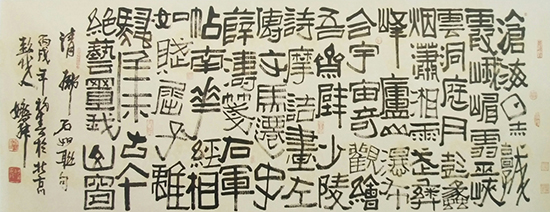 滄海日赤城
霞峨嵋雪巫峽
雲洞庭月彭蠡
烟瀟湘雨武彝
峰廬山瀑布
合宇宙奇觀繪
吾齋壁少陵
詩摩詰畫左
傳文馬遷史
薛濤箋右軍
帖南華經相
如賦屈子離
騷收古今
絕藝置我山窗
清鄧石如聯句
丙戌年於北京